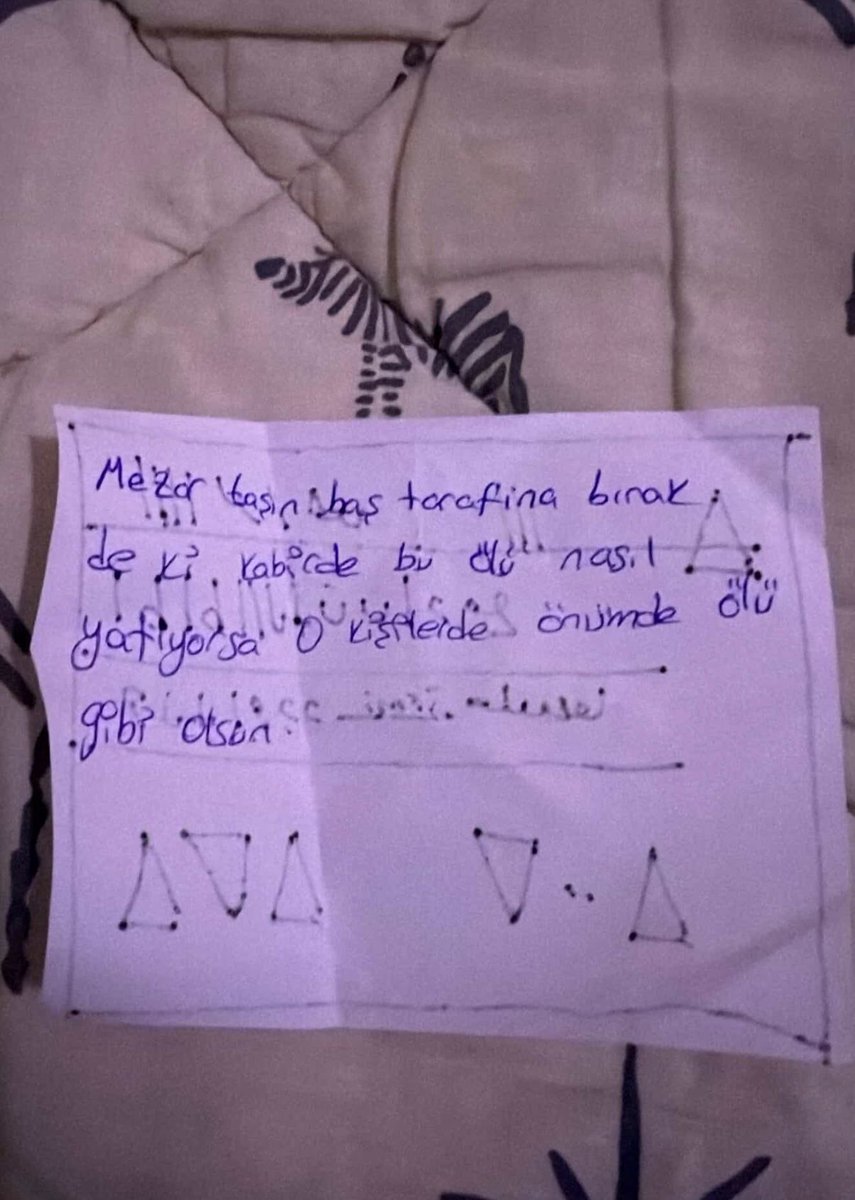 Mezar taşın baş tarafina bırak
de ki. kabirde bir ölü nasıl
yatıyorsa O kişilerde önümde ölü
gibi olsun.